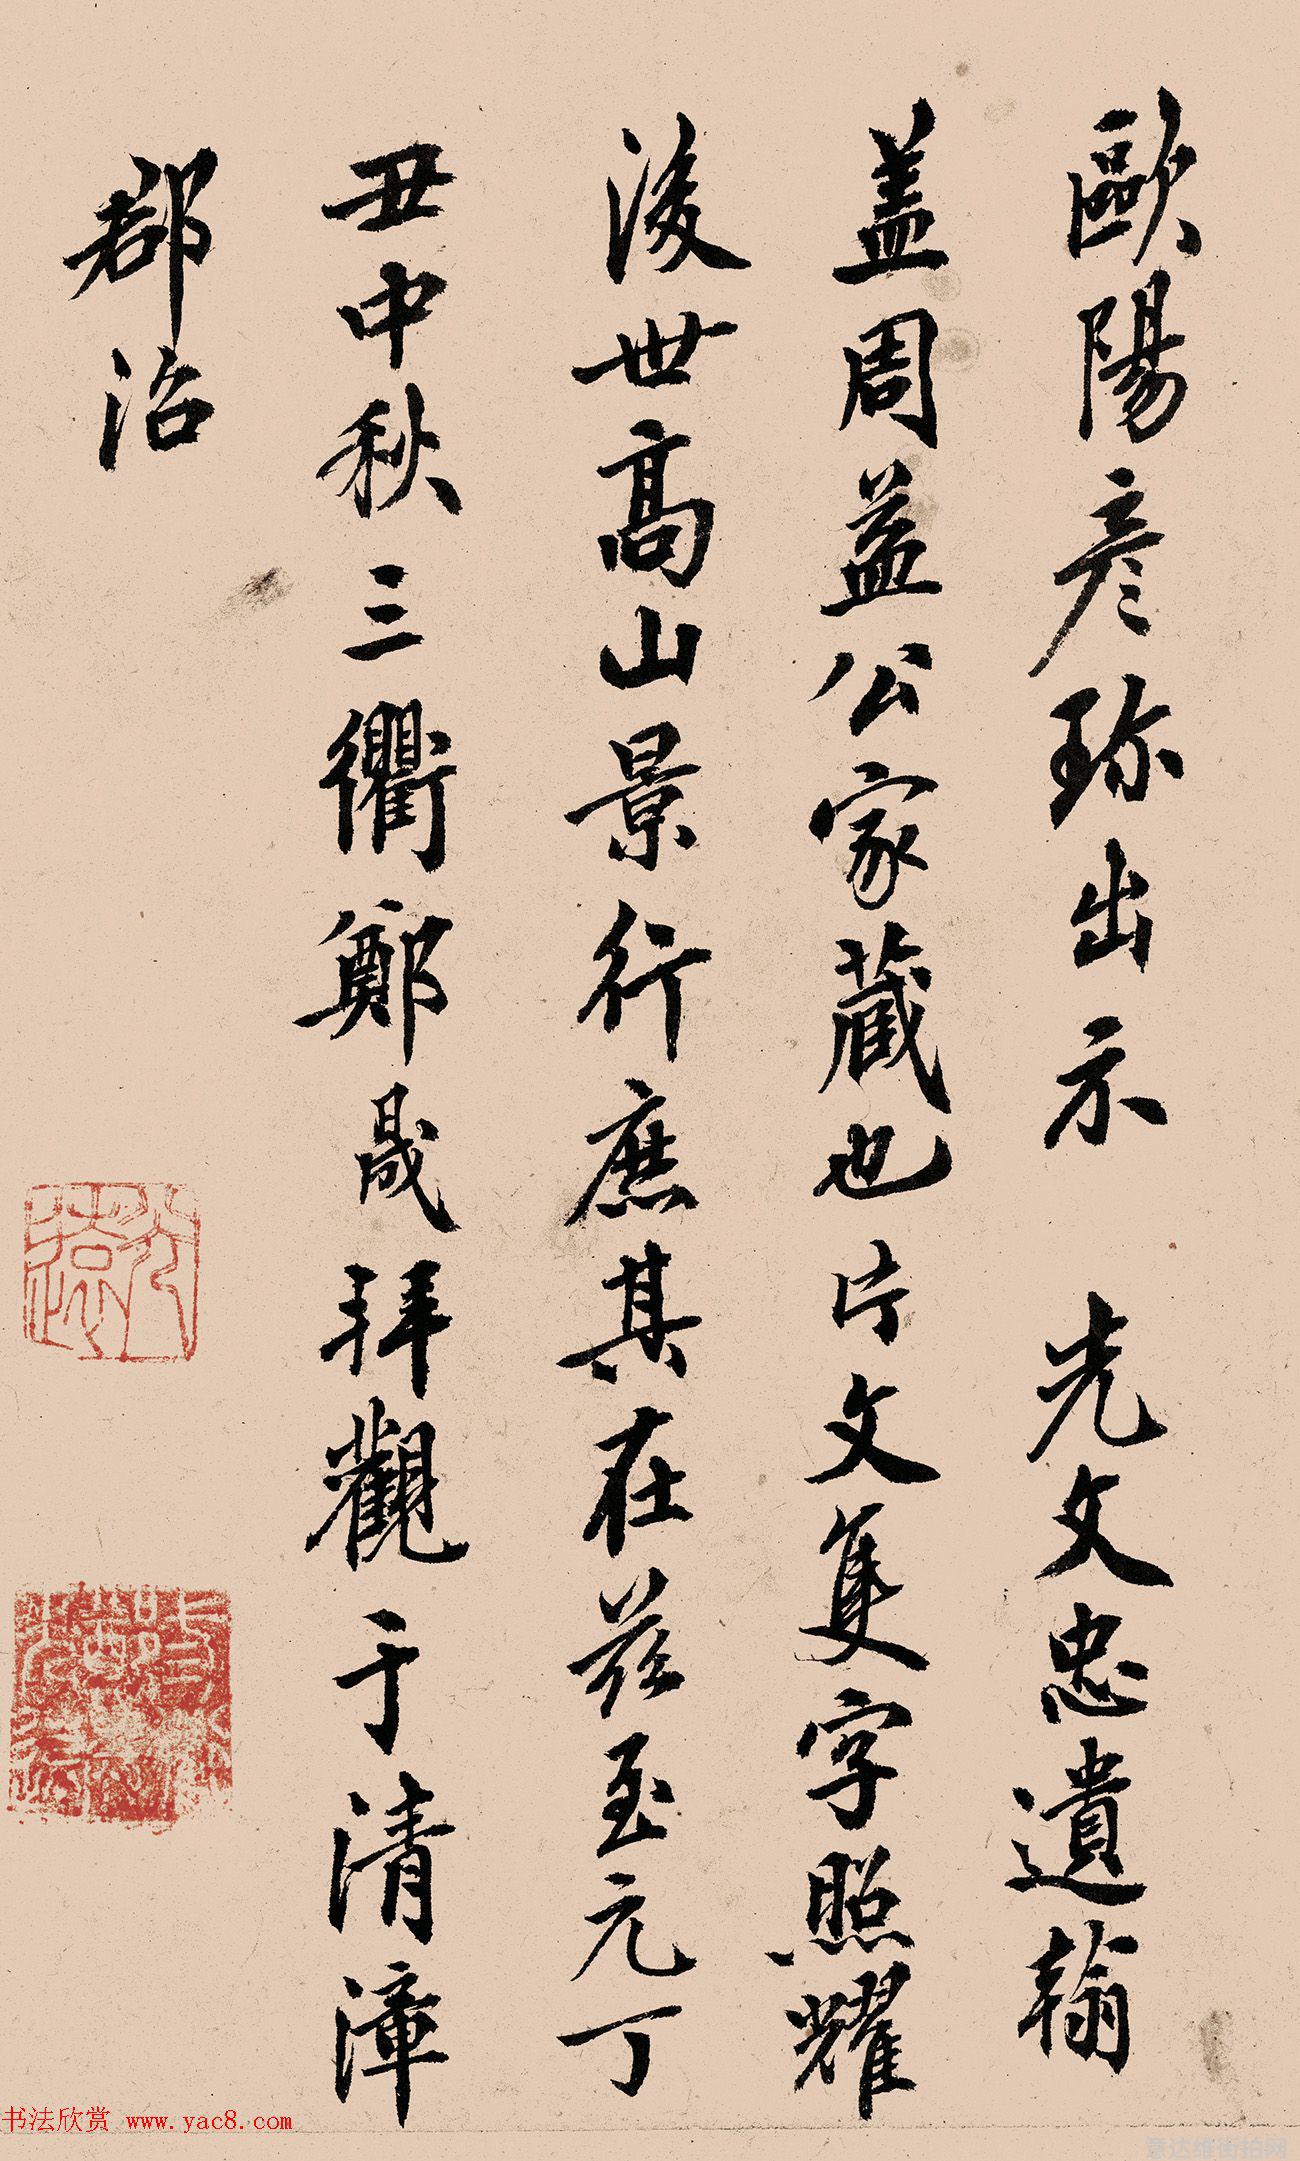 歐陽彥珎出示 先文忠遺翰
盖周益公家藏也片文隻字照耀
後世高山景行庶其在茲至元丁
丑中秋三衢鄭晟拜觀于清漳
郡治
书法欣赏 www.yac8.com